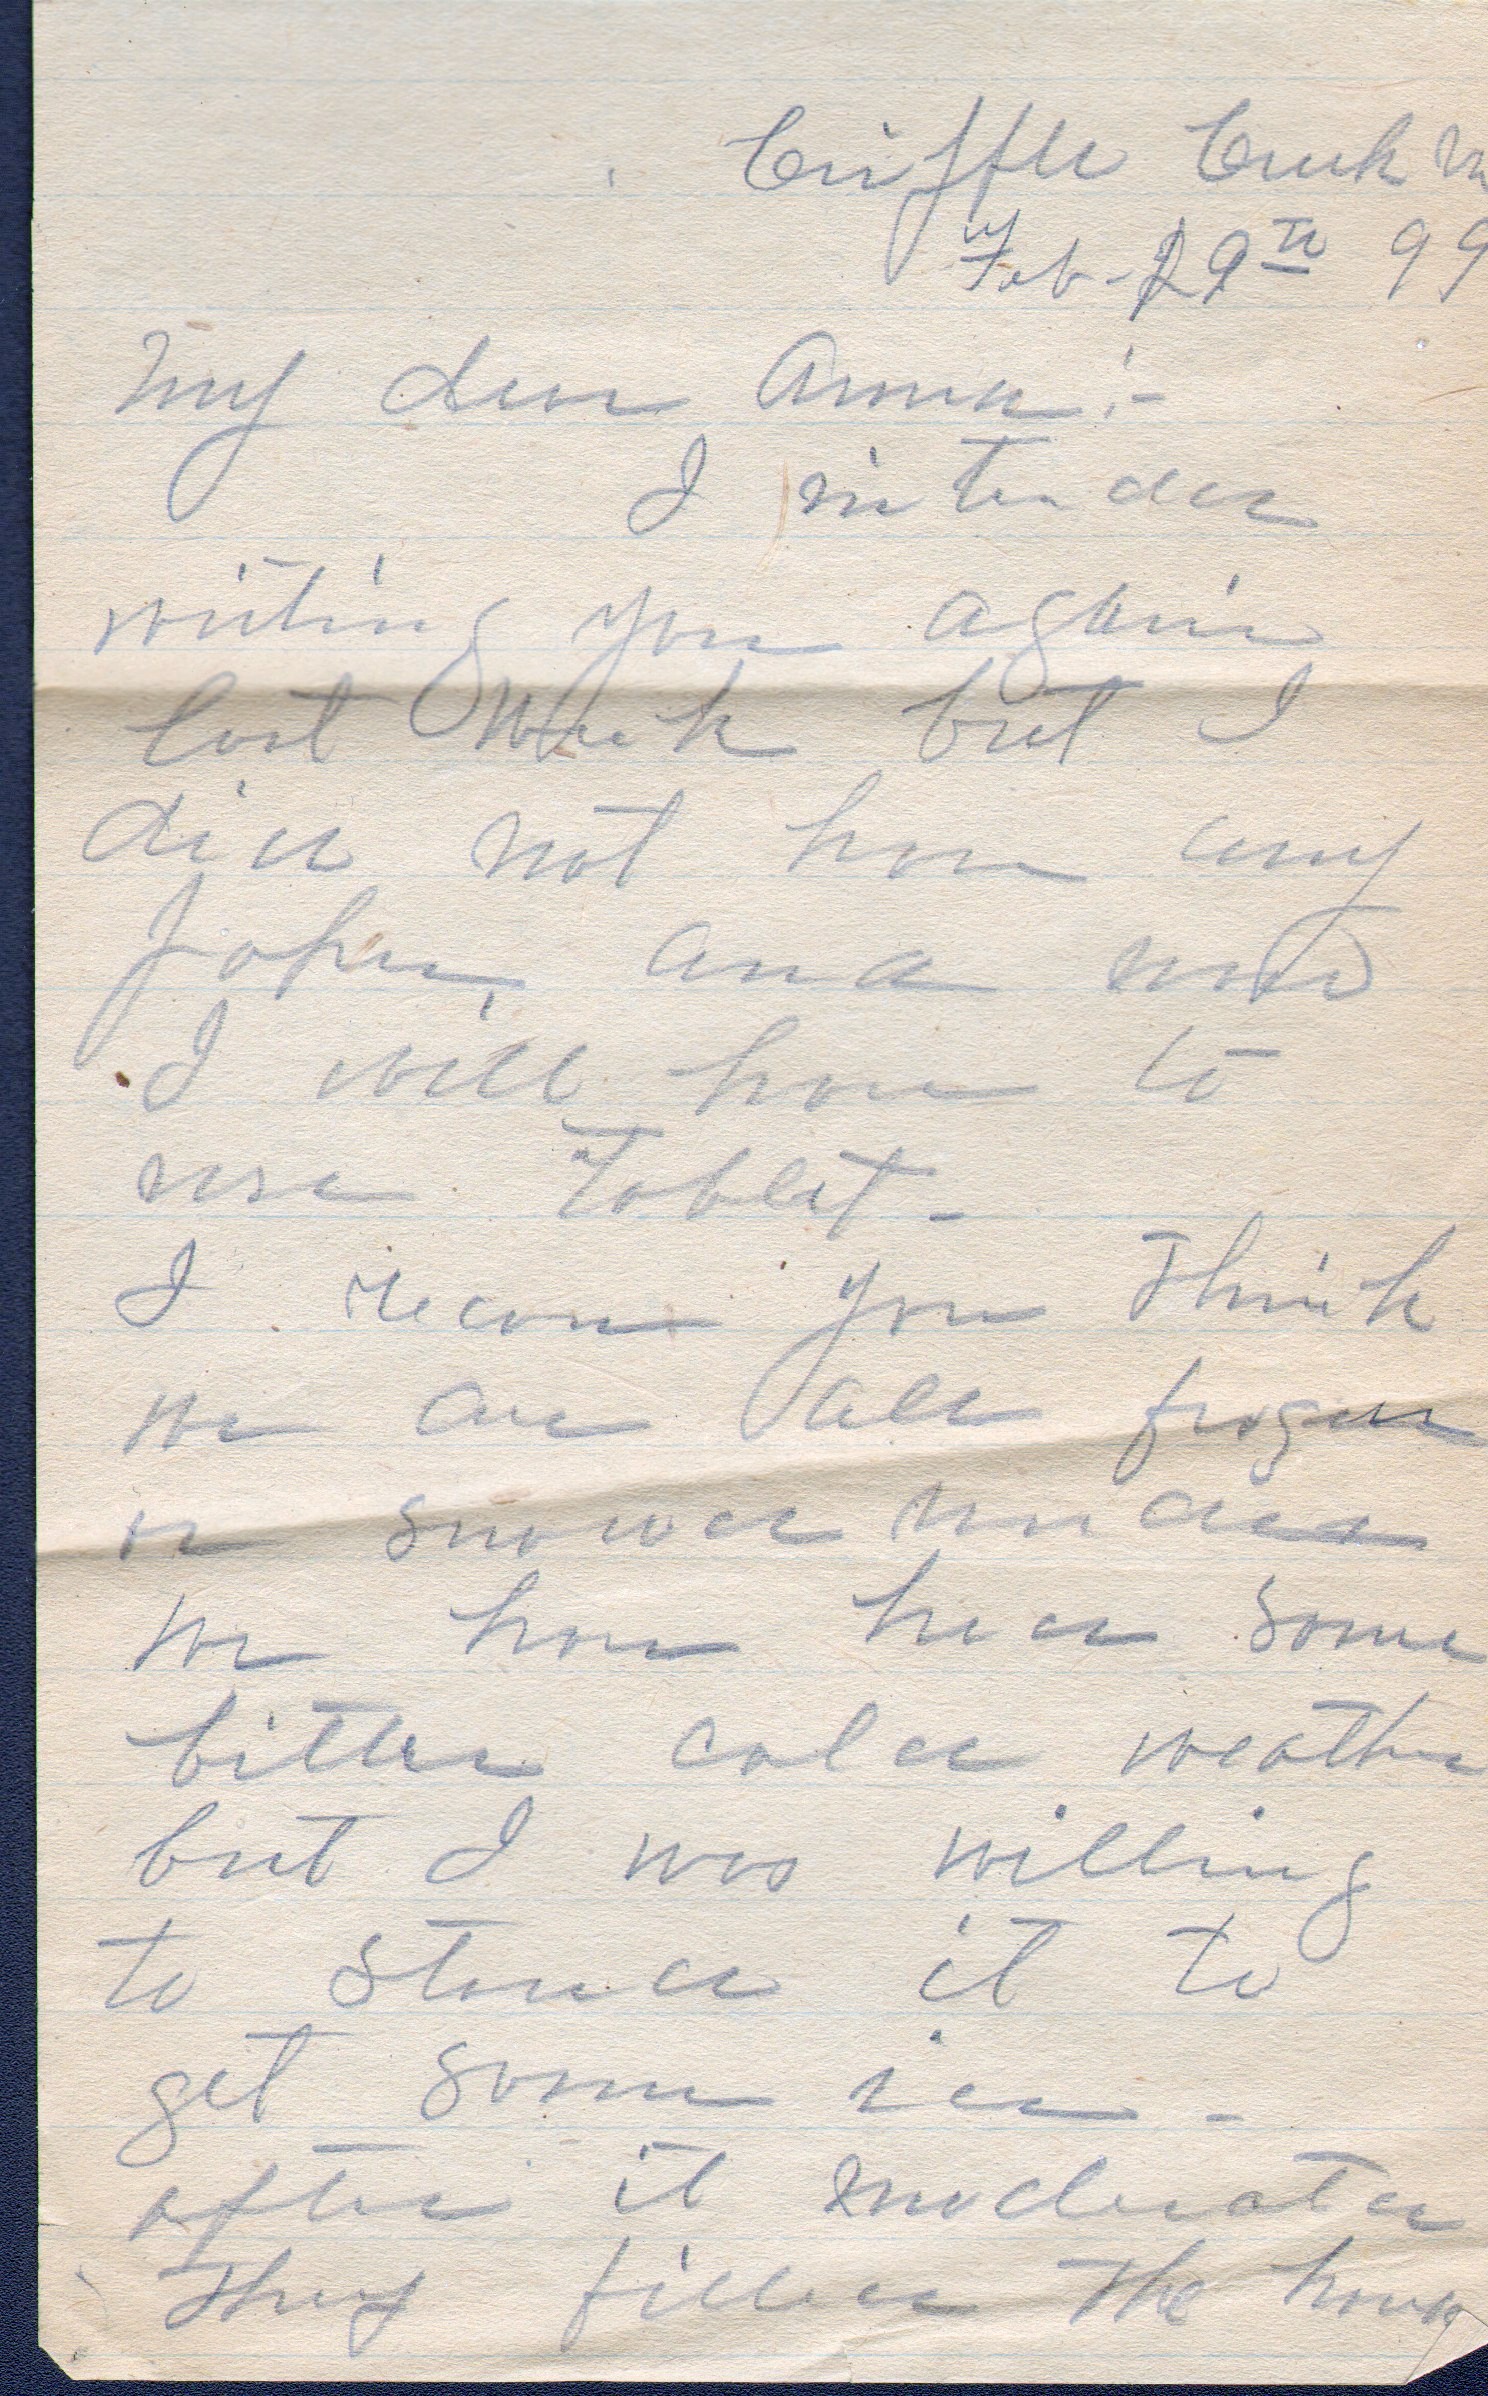 Creek
Feb - 29th 99
My dear Anna :-
I intended
writing you again
last week but I
did not have any
paper, and now
I will have to
use Tablet -
I recon you think
we are all frozen
or snowed under
we have had some
bitter cold weather
but I was willing
to stand it to
get some ice -
after it moderated
They filled the house